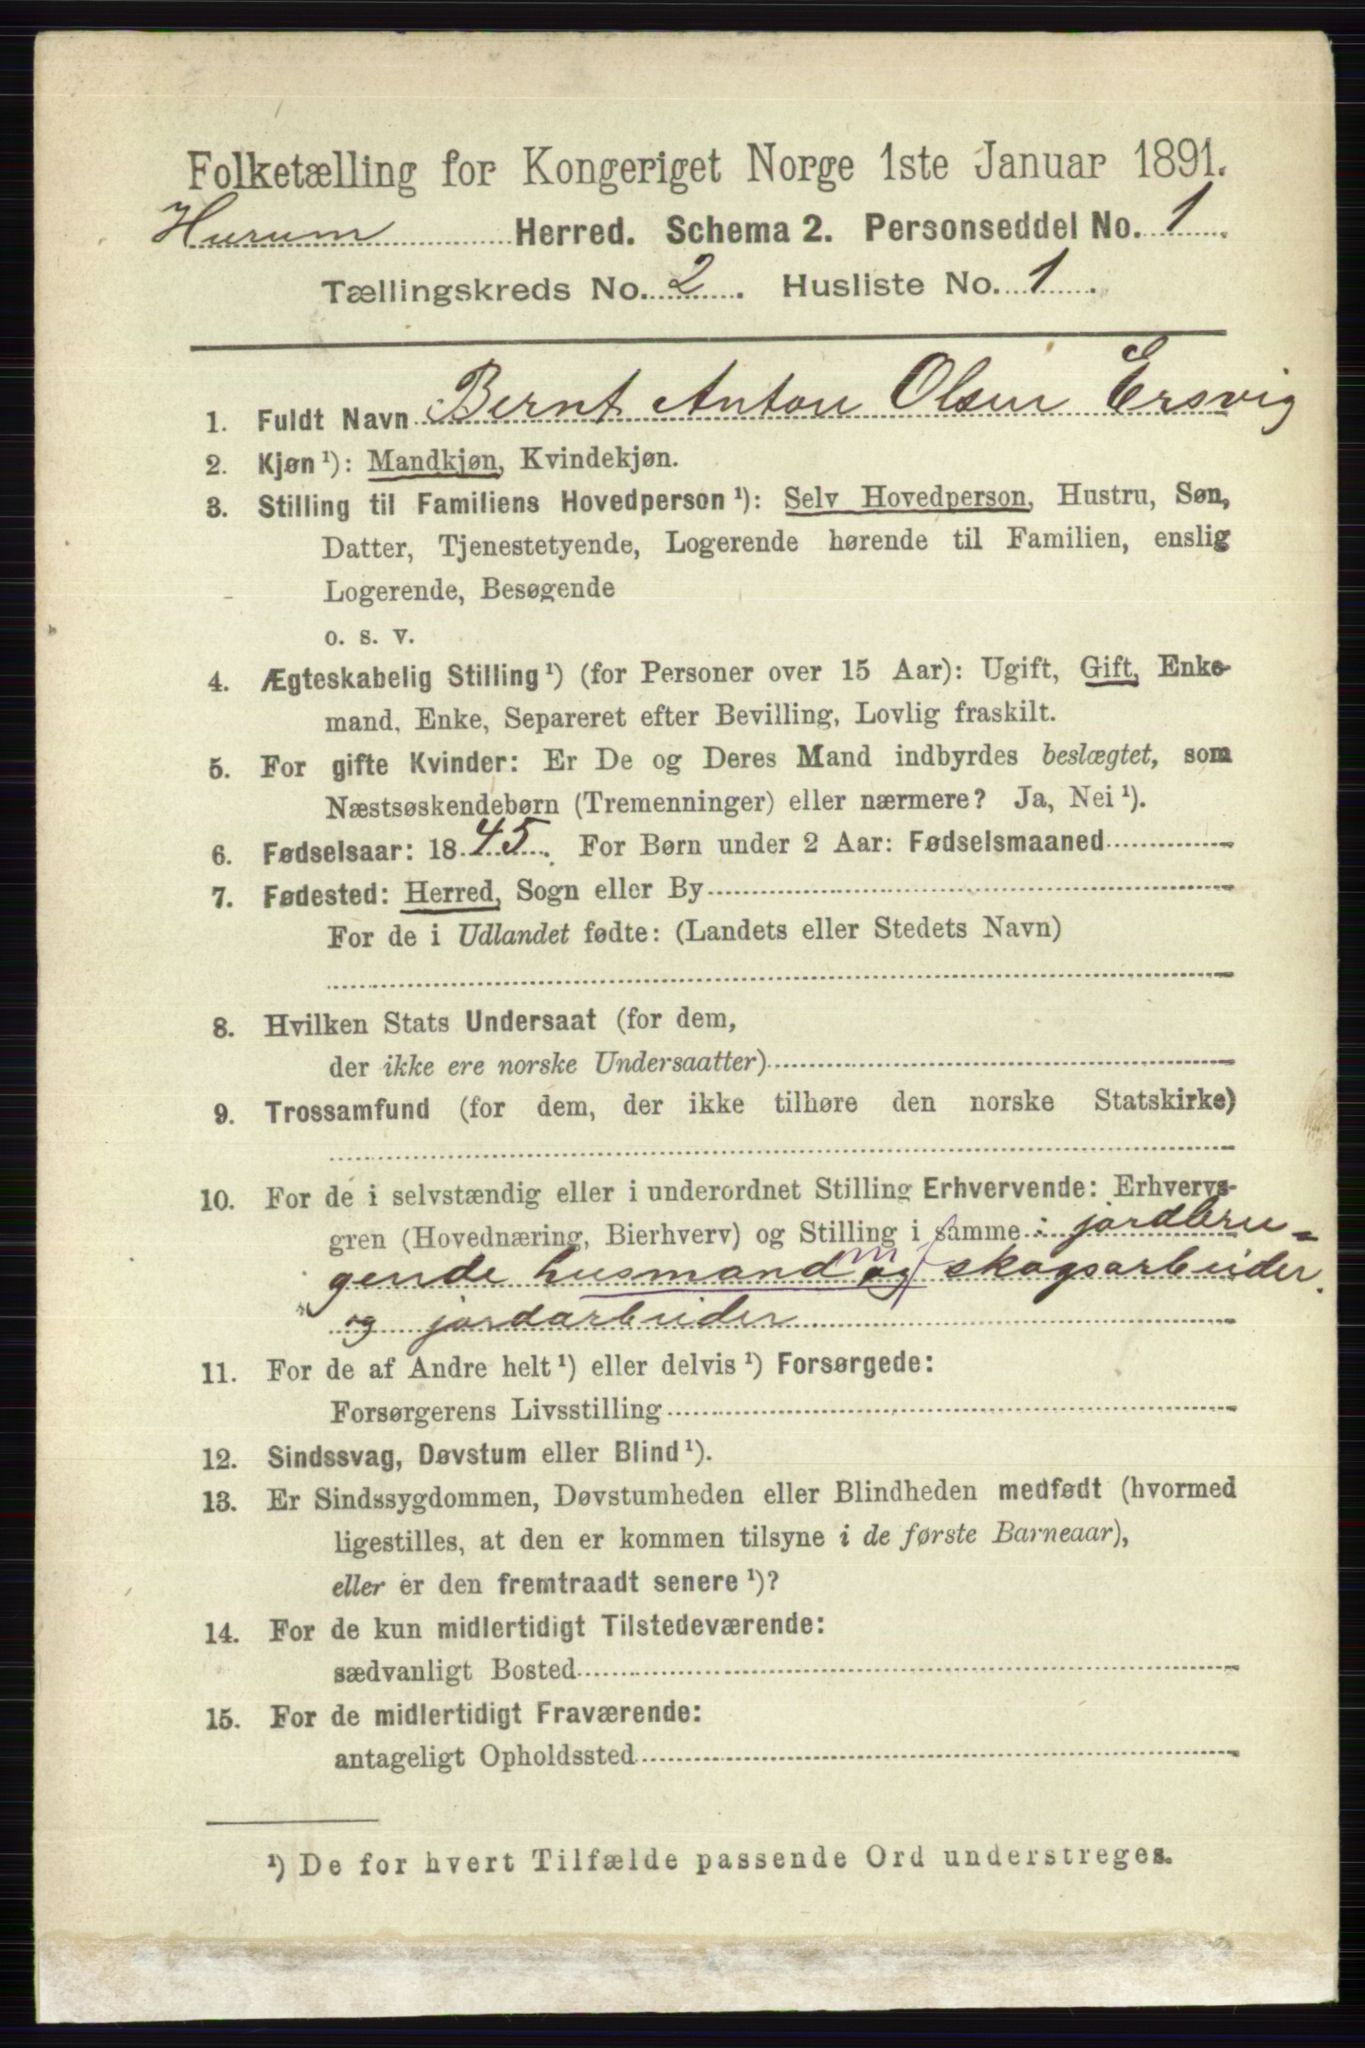 Folketælling for Kongeriget Norge 1ste Januar 1891.
Hurum Herred. Schema 2. Personseddel No. 1
Tællingskreds No. 2. Husliste No. 1.
1. Fuldt Navn Bernt Anton Olsen Ersvig
2. Kjøn¹): Mandkjøn, Kvindekjøn.
3. Stilling til Familiens Hovedperson¹): Selv Hovedperson, Hustru, Søn,
Datter, Tjenestetyende, Logerende hørende til Familien, enslig
Logerende, Besøgende
o. s. v.
4. Ægteskabelig Stilling¹) (for Personer over 15 Aar): Ugift, Gift, Enke-
mand, Enke, Separeret efter Bevilling, Lovlig fraskilt.
5. For gifte Kvinder: Er De og Deres Mand indbyrdes beslægtet, som
Næstsøskendebørn (Tremenninger) eller nærmere? Ja, Nei¹).
6. Fødselsaar: 1845. For Børn under 2 Aar: Fødselsmaaned
7. Fødested: Herred, Sogn eller By
For de i Udlandet fødte: (Landets eller Stedets Navn)
8. Hvilken Stats Undersaat (for dem,
der ikke ere norske Undersaatter)
9. Trossamfund (for dem, der ikke tilhøre den norske Statskirke)
10. For de i selvstændig eller i underordnet Stilling Erhvervende: Erhvervs-
gren (Hovednæring, Bierhverv) og Stilling i samme: jordbru-
gende husmand m/ og skogsarbeider.
og jordarbeider
11. For de af Andre helt¹) eller delvis¹) Forsørgede:
Forsørgerens Livsstilling
12. Sindssvag, Døvstum eller Blind¹).
13. Er Sindssygdommen, Døvstumheden eller Blindheden medfødt (hvormed
ligestilles, at den er kommen tilsyne i de første Barneaar),
eller er den fremtraadt senere¹)?
14. For de kun midlertidigt Tilstedeværende:
sædvanligt Bosted
15. For de midlertidigt Fraværende:
antageligt Opholdssted
¹) De for hvert Tilfælde passende Ord understreges.